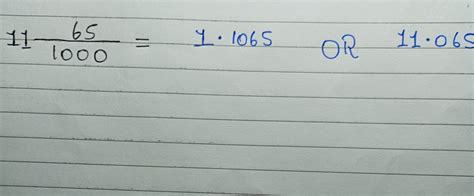 11 65/1000 = 1.1065 OR 11.065